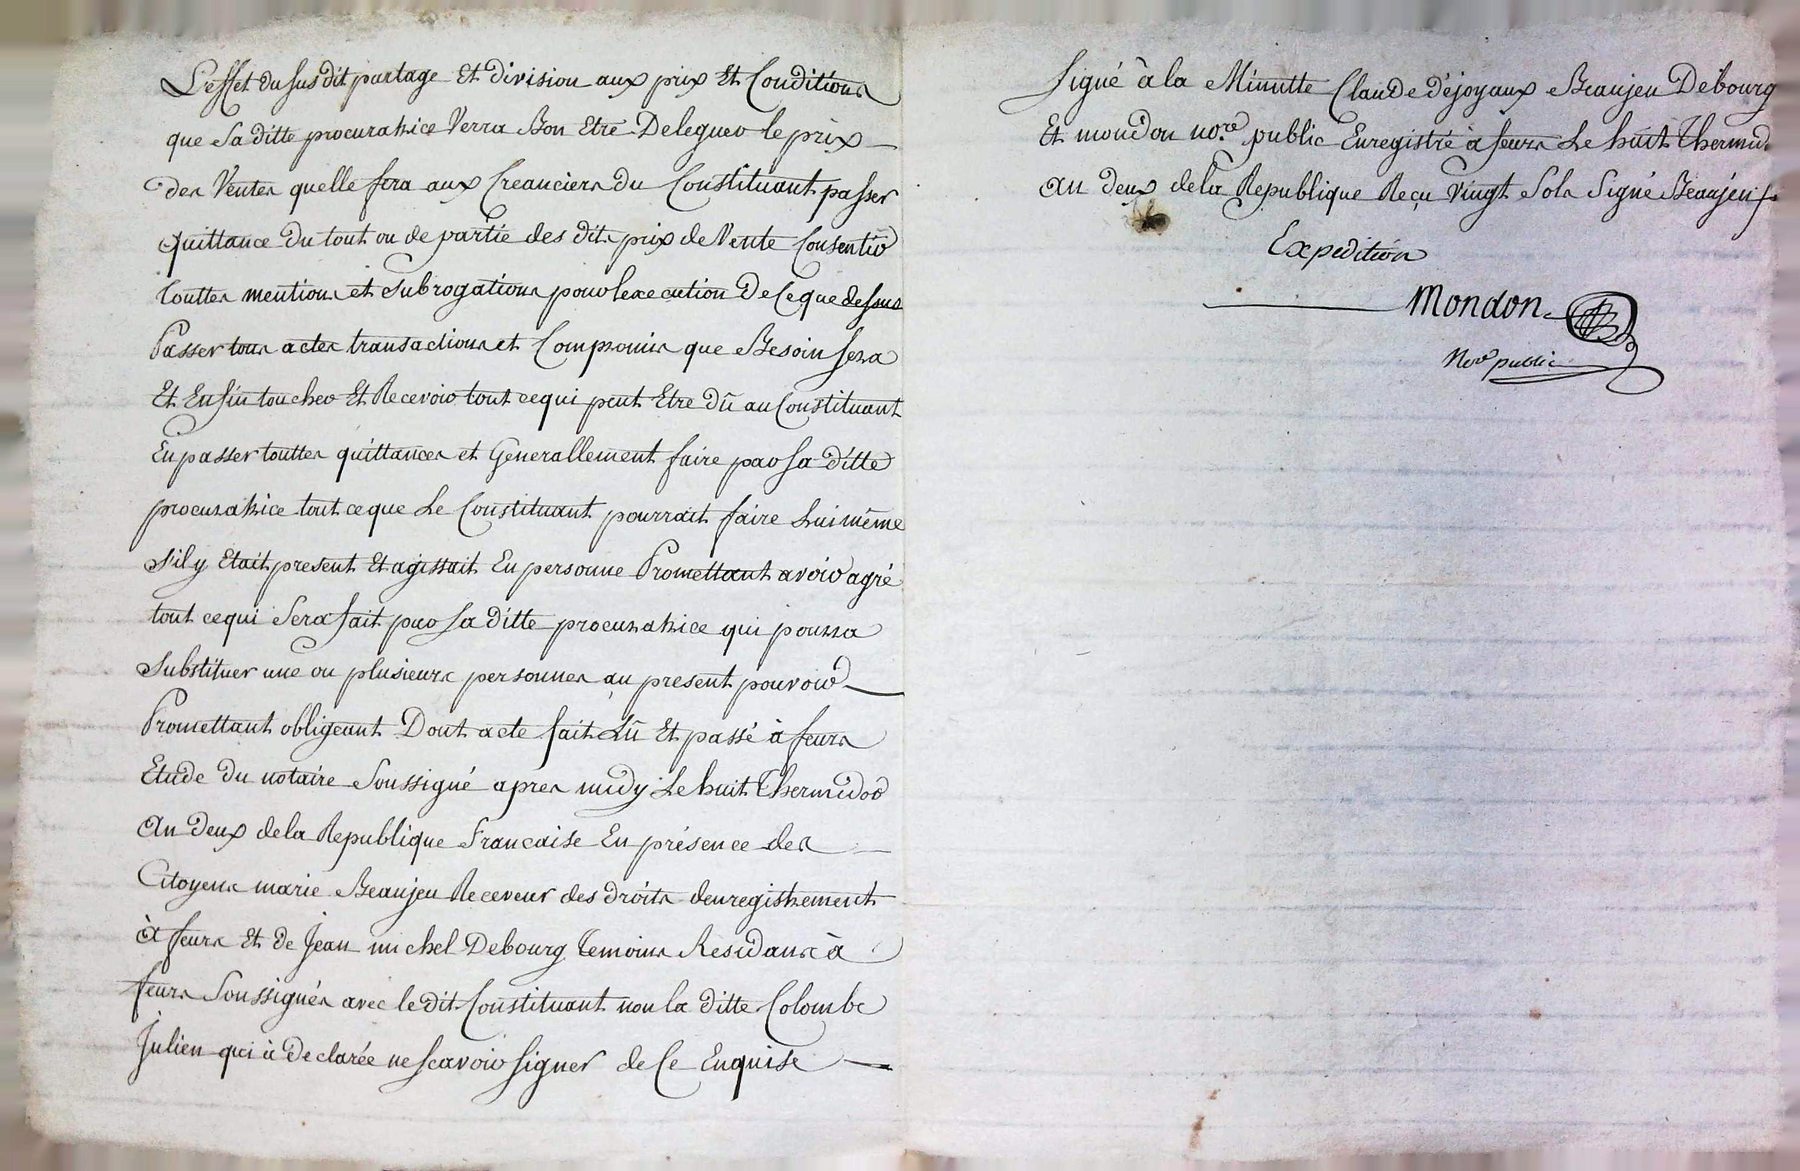 L'effet du susdit partage Et division aux prix Et Conditions
que Sa ditte procuratrice Verra Bon Etre Deleguer le prix
des Ventes quelle fera aux Creanciers du Constituant passer
quittance du tout ou de partie des dits prix de Vente Consentir
touttes mentions et subrogations pour lexecution De Ce que dessus
Passer tous actes transactions et Compromis que Besoin sera
Et Enfin toucher Et Recevoir tout cequi peut Etre Dû au Constituant
En passer touttes quittances et Generallement faire par sa ditte
procuratrice tout ceque Le Constituant pourrait faire Lui même
s'il y Etait present Et agissait En personne Promettant avoir agré
tout cequi Sera fait par sa ditte procuratrice qui pourra
Substituer une ou plusieurs personnes au present pouvoir
Promettant obligeant Dont acte fait Lû Et passé à feurs
Etude du notaire Soussigné apres midy Le huit Thermidor
an deux dela Republique francaise En présence des
Citoyens marie Beaujeu Receveur des droits denregistrement
à feurs Et de Jean michel Debourg temoins Residans à
feurs Soussignés avec le dit Constituant non la ditte Colombe
Julien qui à declarée ne scavoir signer de Ce Enquise
signé à la Minutte Claude Déjoyaux Beaujeu Debourg
Et mondon nore public Enregistré à feurs Le huit Thermid.
an deux dela Republique Reçu Vingt Sols Signé Beaujeu
Expedition
Mondon
Nore public